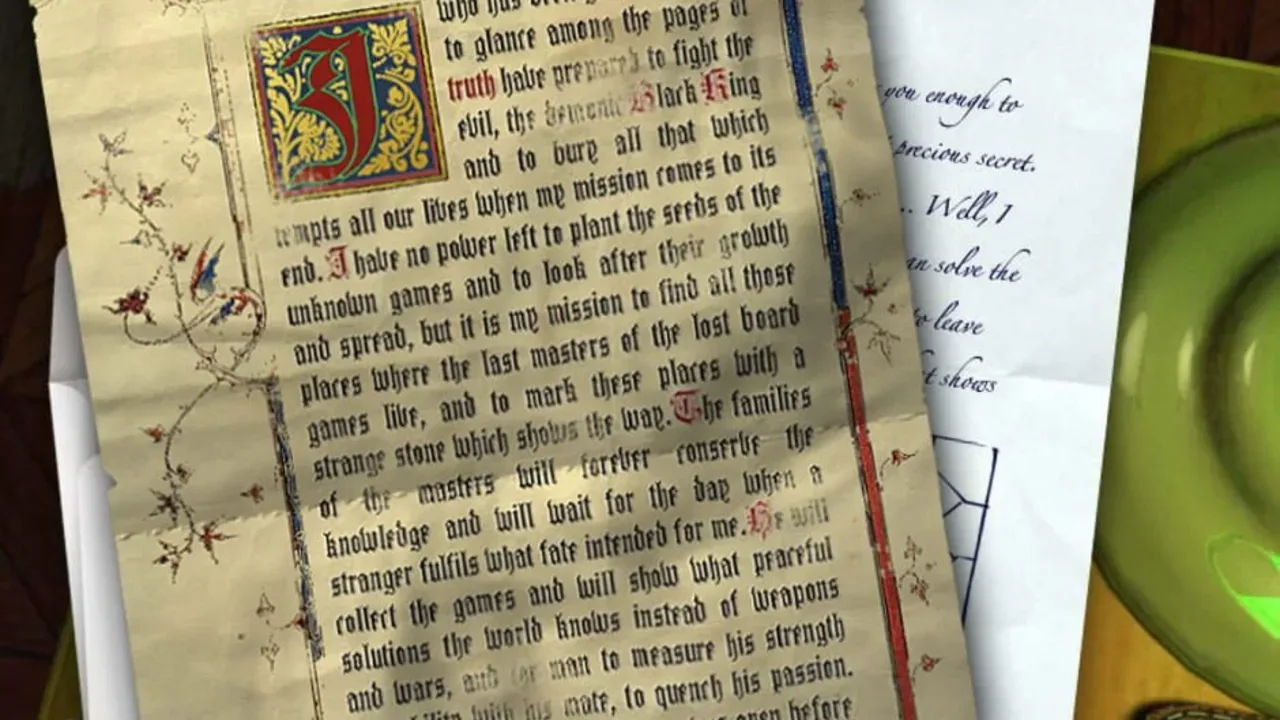 I who has
to glance among the pages of
truth have prepared to fight the
evil, the demonic Black King
and to bury all that which
tempts all our lives when my mission comes to its
end. I have no power left to plant the seeds of the
unknown games and to look after their growth
and spread, but it is my mission to find all those
places where the last masters of the lost board
games live, and to mark these places with a
strange stone which shows the way. The families
of the masters will forever conserve the
knowledge and will wait for the day when a
stranger fulfils what fate intended for me. He will
collect the games and will show what peaceful
solutions the world knows instead of weapons
and wars, and for man to measure his strength
with his mate, to quench his passion.
before
you enough to
precious secret.
.. Well, I
solve the
to leave
shows